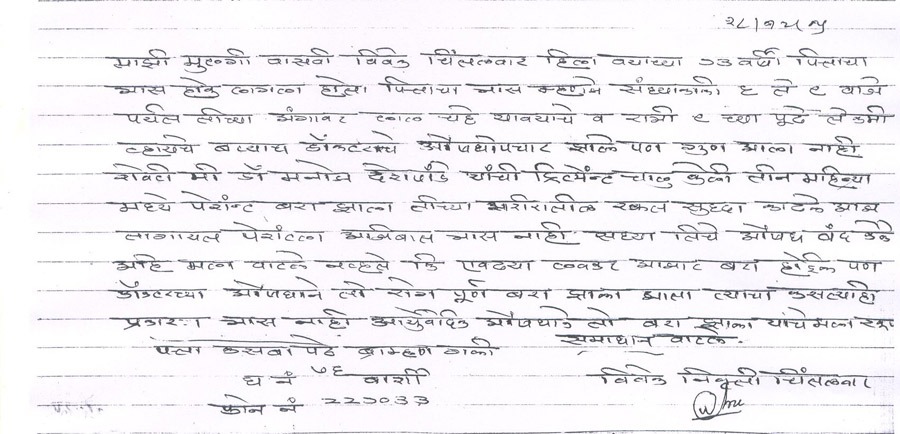 माझी मुलगी वासवी विवेक चिंतलवार हिला वयाच्या १३ वर्षी पित्ताचा
त्रास होऊ लागला होता पित्ताचा त्रास म्हणजे संध्याकाळी ६ ते ९ वाजे
पर्यंत तीच्या अंगावर लाल चट्टे यावयाचे व रात्री ९ च्या पुढे ते कमी
व्हायचे बऱ्याच डॉक्टरांचे औषधोपचार झाले पण गुण आला नाही
शेवटी मी डॉ मनोज देशपांडे यांची ट्रिटमेंन्ट चालु केली तीन महिन्या
मध्ये पेशंन्ट बरा झाला तीच्या शरीरातील रक्त सुध्दा काढले आज
तागायत पेशंटला अजिबात त्रास नाही सध्या तिचे औषध बंद केले
आहे मला वाटले नव्हते कि एवढ्या लवकर आजार बरा होईल पण
डॉक्टरच्या औषधाने तो रोग पूर्ण बरा झाला आता त्याचा कसल्याही
प्रकारचा त्रास नाही आयुर्वेदिक औषधाने तो बरा झाला याचे मला
समाधान वाटले.
पत्ता कसबा पेठ ब्राम्हण गल्ली
घ नं ७६ बार्शी
विवेक निवृत्ती चिंतलवार
फोन नं २२३०३३